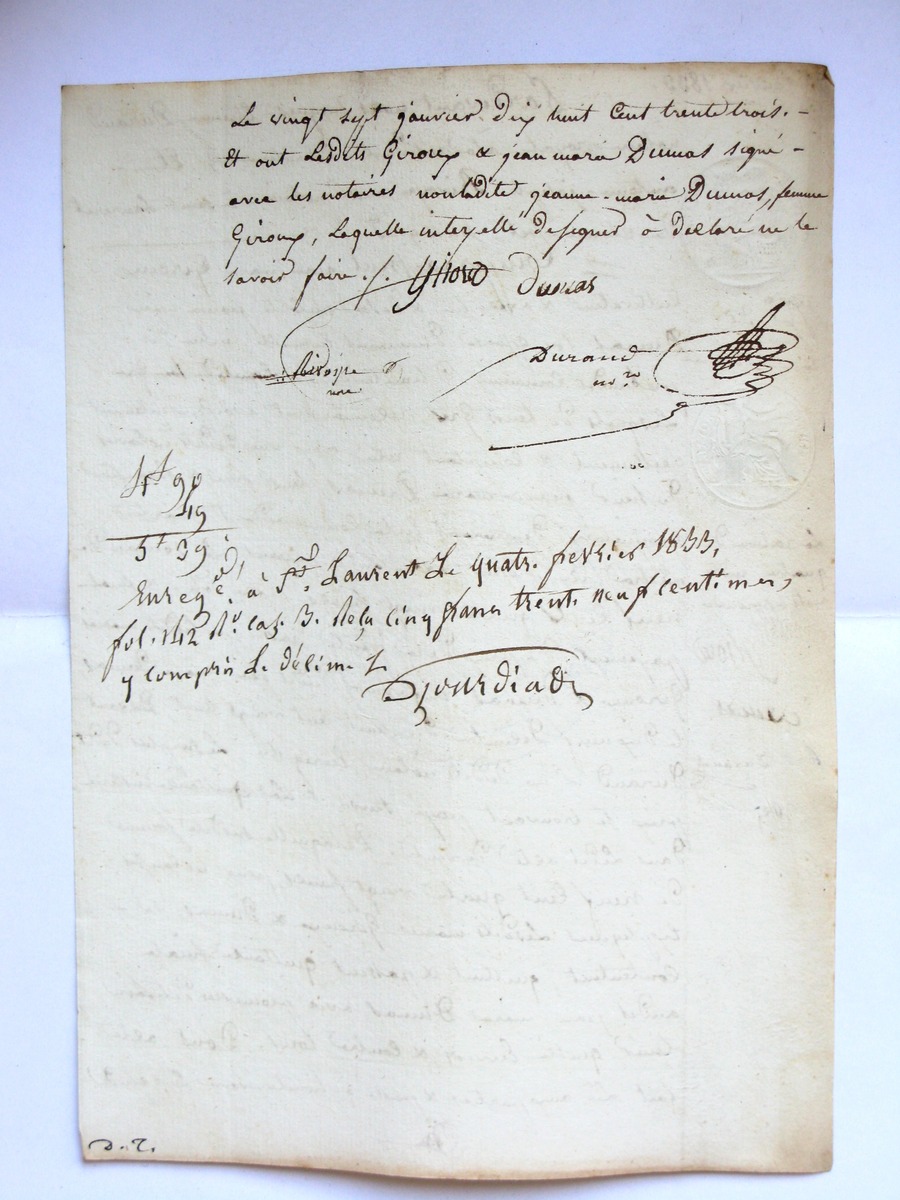 Le vingt sept janvier dix huit Cent trente trois. -
Et ont Lesdits Giroux & jean marie Dumas signé -
avec les notaires non ladite jeanne-marie Dumas, femme
Giroux, Laquelle interpellé de signer à déclaré ne le
savoir faire ./.
Giroux Dumas
Durand
nore
nore
4f 90
49
5f 39
Enregé. à St. Laurent Le quatre février 1833,
fol. 142 Ro. Cas. 3. Reçu Cinq francs trente neuf centimes,
y compris Le décime
D. T.